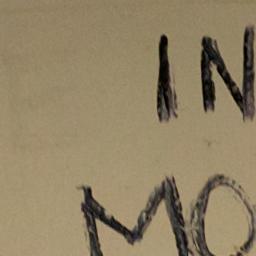 IN
MO